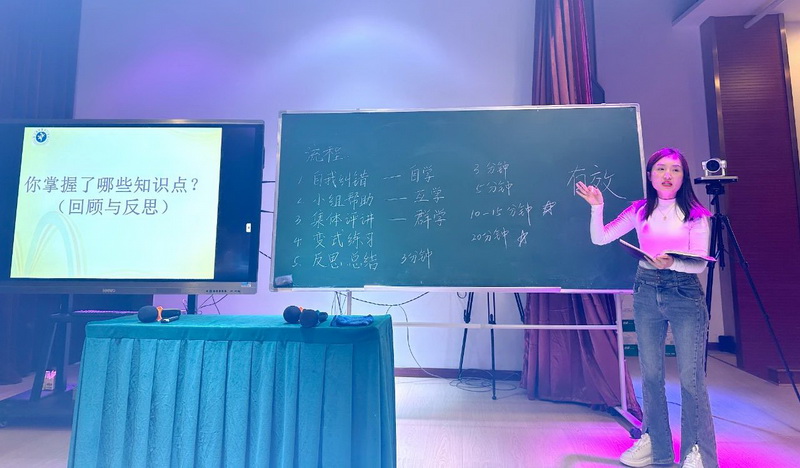 你掌握了哪些知识点？
（回顾与反思）
流程
1 自我纠错 — 自学 3分钟
2 小组帮助 — 互学 5分钟
3 集体评讲 — 群学 10-15分钟 ☆
4 变式练习 20分钟 ☆
5 反思总结 3分钟
有效